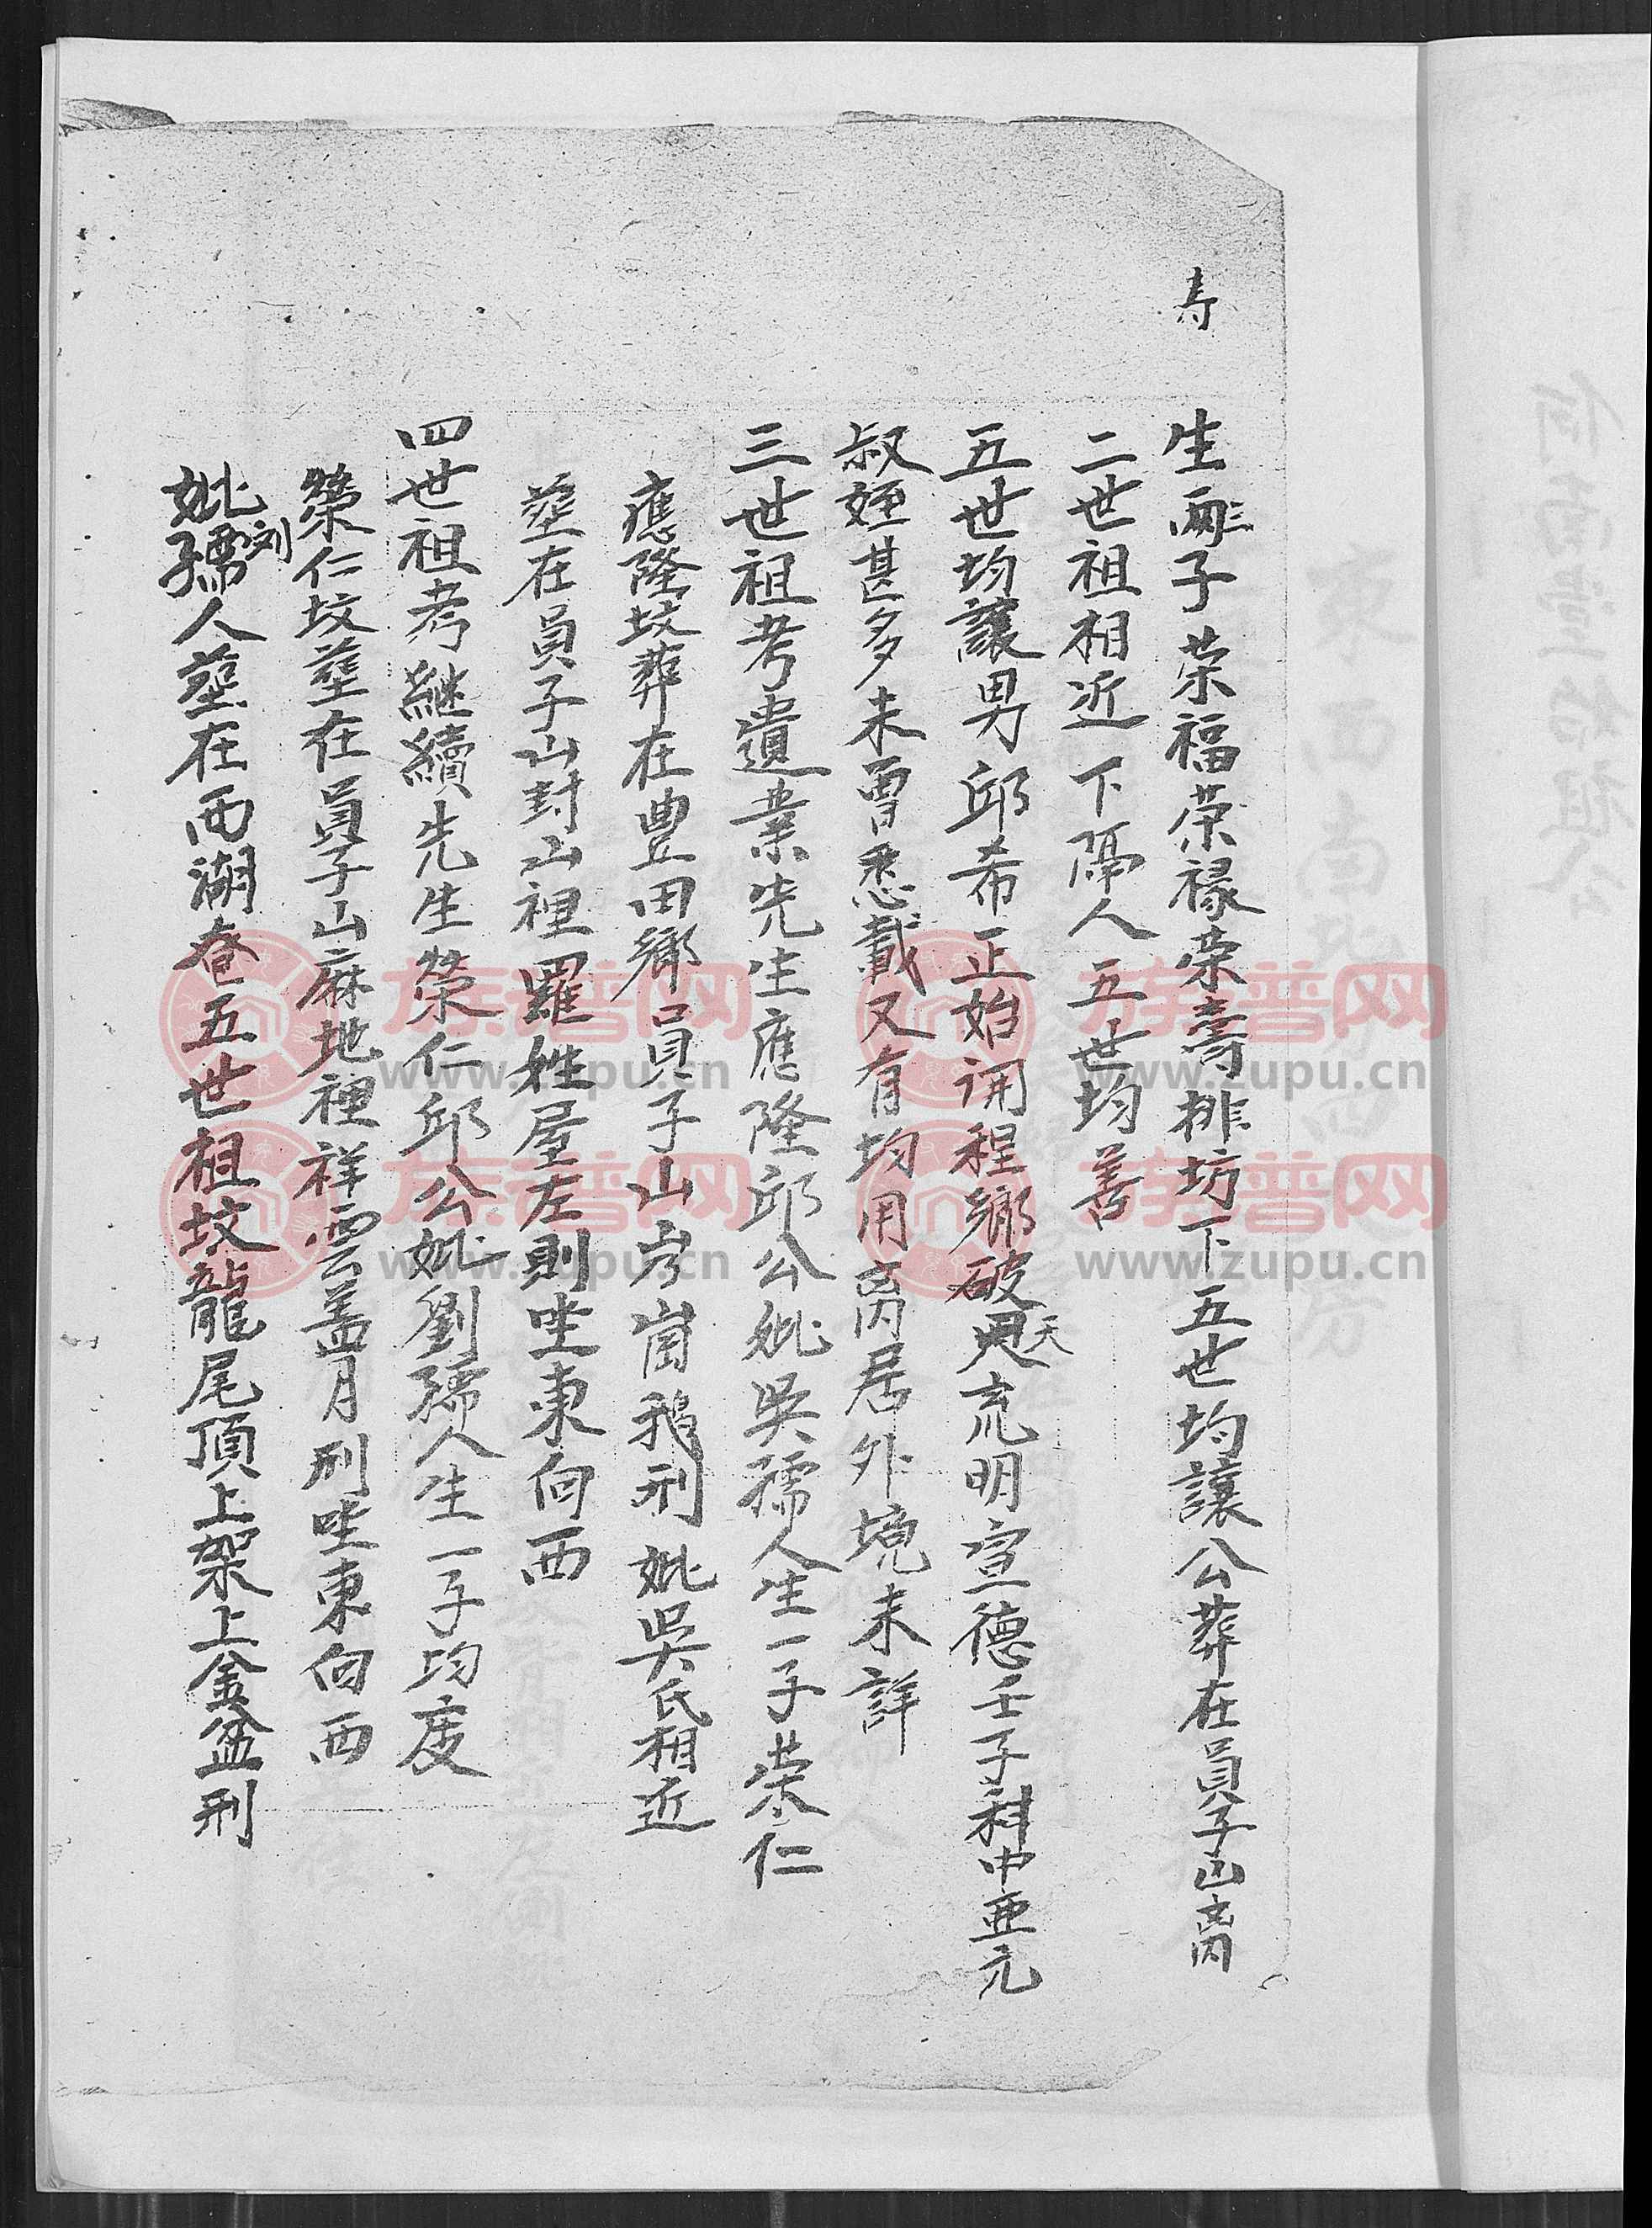 寿
生兩三子荣福荣禄荣壽排坊下五世均讓公葬在員子山离
二世祖相近下隔人五世均善
五世均讓男邱希正始開程鄉破天荒明宣德壬子科中亜元
叔姪甚多未曾悉載又有均用离居外境未詳
三世祖考遺業先生應隆邱公妣吳孺人生一子荣仁
應隆坟葬在豊田鄉員子山岁崗鵝刑妣吳氏相近
塟在員子山封山裡羅姓屋左則坐東向西
四世祖考継續先生榮仁邱公妣劉孺人生一子均度
榮仁坟塟在員子山麻地裡祥雲盖月刑坐東向西
妣刘孺人塟在西湖巷五世祖坟龍尾頂上架上金盆刑
族谱网 www.zupu.cn
族谱网 www.zupu.cn
族谱网 www.zupu.cn
族谱网 www.zupu.cn